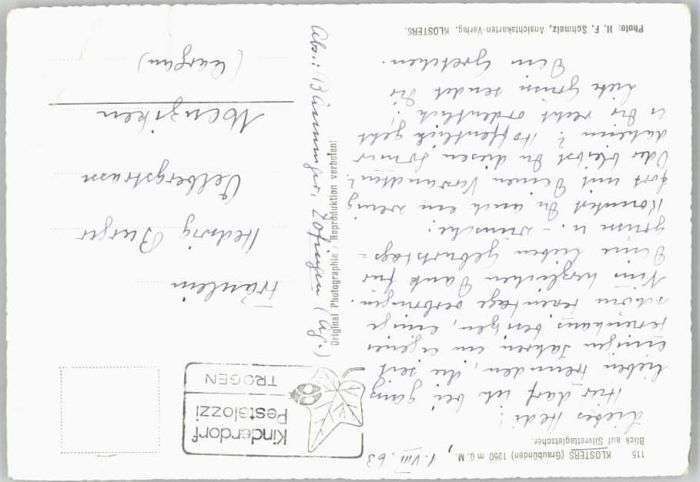 115 KLOSTERS (Graubünden) 1250 m ü. M.
Blick auf Silvrettagletscher.
1. VIII. 63
Liebes Hedi!
Hier darf ich bei ganz
lieben Freunden, die seit
einigen Jahren ein eigenes
Ferienhaus besitzen, einige
schöne Ferientage verbringen.
Nimm herzlichen Dank für
Deine lieben Geburtstags-
grüsse u. -wünsche!
Kommst Du auch ein wenig
fort mit Deinen Verwandten?
Oder bleibst Du diesen Sommer
daheim? Hoffentlich geht
es Dir recht ordentlich!
Liebe Grüsse sendet Dir
Dein Gretchen.
Photo: H. F. Schmelz, Ansichtskarten-Verlag, KLOSTERS.
Original Photographie / Reproduktion verboten!
Abs.: Zofingen (Ag.)
Kinderdorf
Pestalozzi
TROGEN
Fräulein
Hedwig Burger
Oelbergstrasse
(Aargau)